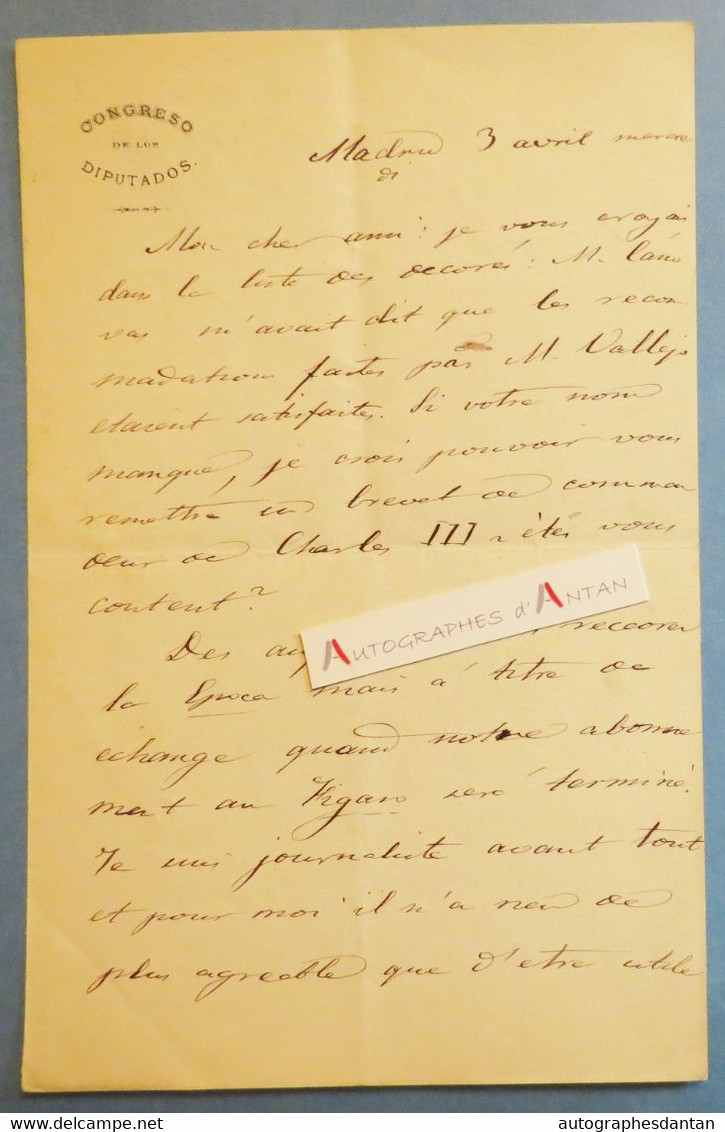 CONGRESO
DE LOS
DIPUTADOS.
Madrid 3 avril mercre
di
Mon cher ami : je vous croyais
dans la liste des decorés : M. Cáno
vas m'avait dit que les recom
madations faites par M. Vallejo
etaient satisfaites. Si votre nom
manque, je crois pouvoir vous
remettre un brevet de comman
deur de Charles III ~ étes vous
content?
AUTOGRAPHES d'ANTAN
Des recevrez
la Epoca mais a titre de
echange quand notre abonne
ment au Figaro será terminé.
Je suis journaliste avant tout
et pour moi il n'a rien de
plus agreable que d'etre utile
autographesdantan